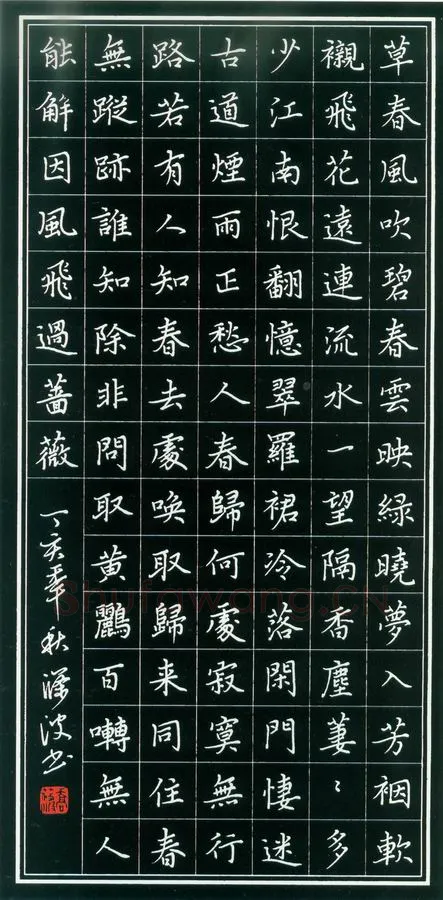 草春風吹碧春雲映綠曉夢入芳裀軟
襯飛花遠連流水一望隔香塵萋〻多
少江南恨翻憶翠羅裙冷落閑門悽迷
古道煙雨正愁人春歸何處寂寞無行
路若有人知春去處喚取歸来同住春
無蹤跡誰知除非問取黃鸝百囀無人
能解因風飛過薔薇
丁亥年秋波书
Shufawang.CN